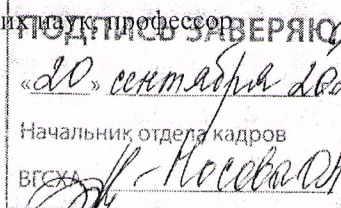 их наук, профессор
ПОДПИСЬ ЗАВЕРЯЮ
«20» сентября 20
Начальник отдела кадров
ВГСХА Носова